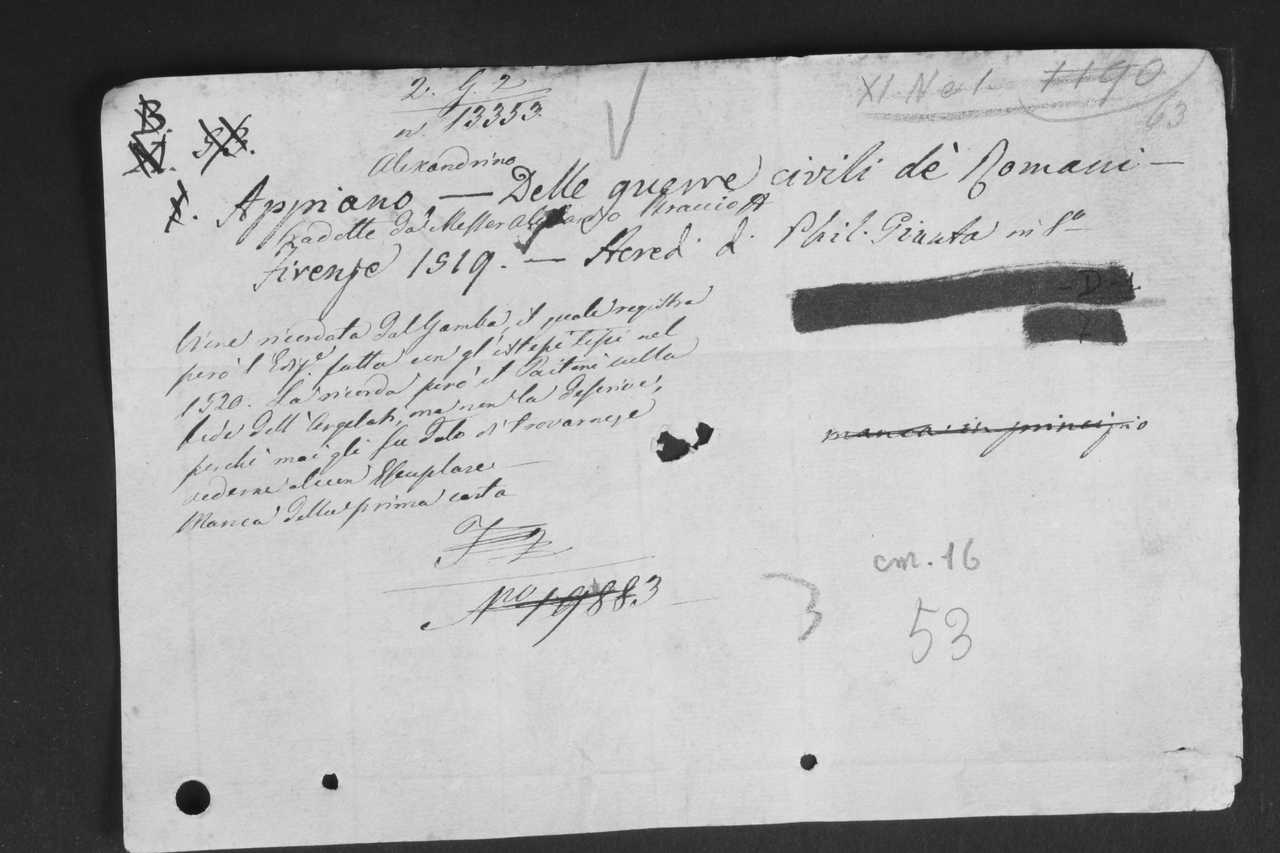 2. G. 2
n. 13353
XI. N e 1. 1190
63
B.
53.
Alexandrino
Appiano, — Delle guerre civili dè Romani —
tradotte da Messer Alessandro Braccio
Firenze 1519. — Hered. d. Phil. Giunta in 8º
D
Viene ricordata dal Gamba, il quale registra
però l'Edize. fatta con gl'istessi tipi nel
1520. La ricorda però il Paitoni sulla
fede dell'Argelati, ma non la descrive,
perchè mai gli fu dato di trovarne, e
vederne alcun Esemplare —
Manca della prima carta
manca in principio
No 19883
cm. 16
53